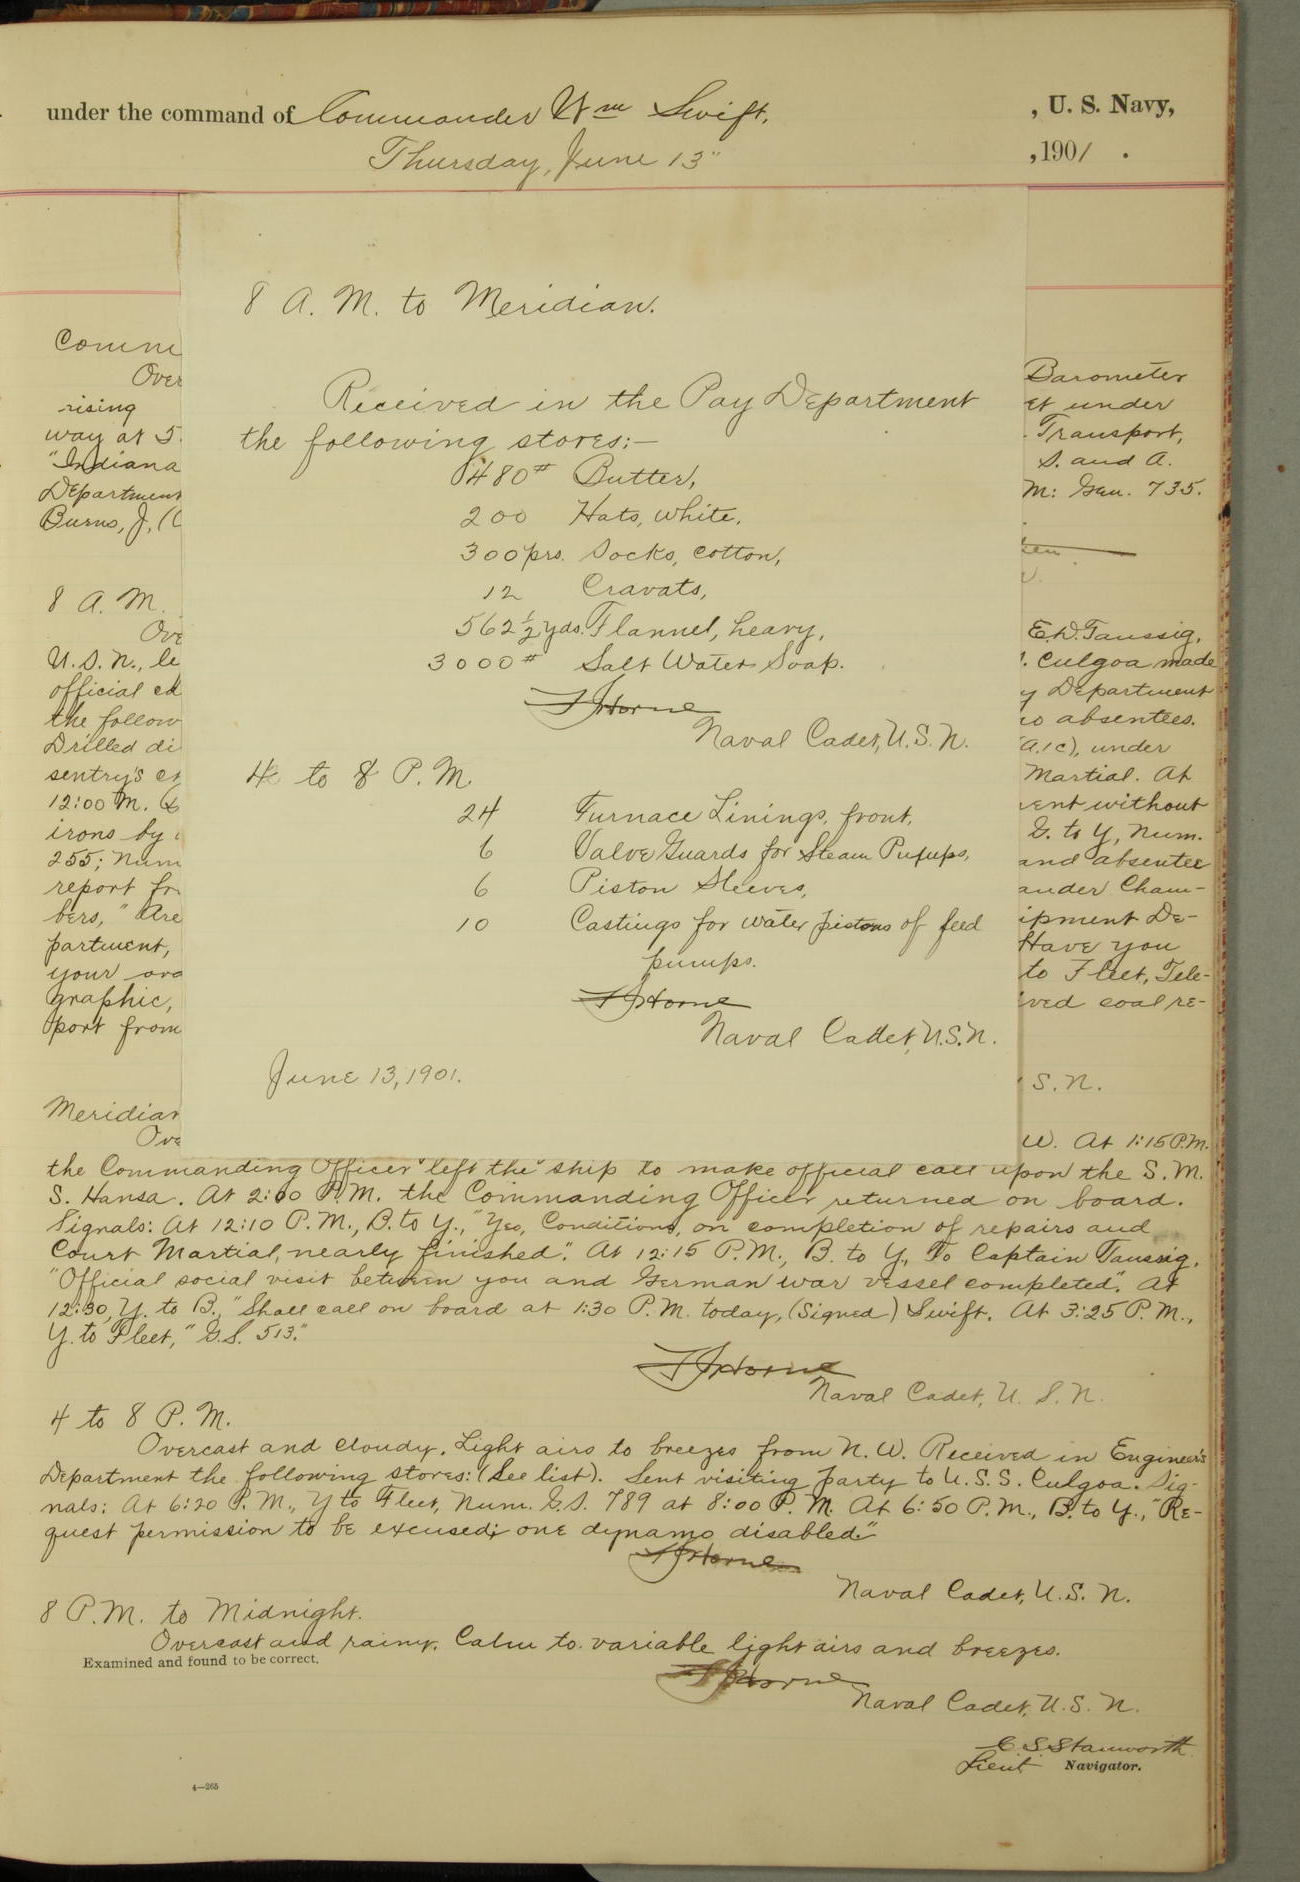 under the command of Commander Wm Swift, , U. S. Navy,
Thursday, June 13" , 1901 .
8 A. M. to Meridian.
Received in the Pay Department
the following stores:—
480# Butter,
200 Hats, white,
300 prs. Socks, cotton,
12 Cravats,
562 1/2 yds. Flannel, heavy,
3000# Salt Water Soap.
F J Horne
Naval Cadet, U.S.N.
4 to 8 P. M.
24 Furnace Linings, front,
6 Valve Guards for Steam Pumps,
6 Piston Sleeves,
10 Castings for water pistons of feed
pumps.
F J Horne
Naval Cadet, U.S.N.
June 13, 1901.
Comm
Over
rising
way at 5
"Indiana
Department
Burns, J, (
8 A. M.
Ove
U. S. N., le
official ca
the follow
Drilled di
sentry's
12:00 M.
irons by
255; Num
report fr
bers, "Are
partment,
your
graphic,
port from
Meridian
Ove
Barometer
et under
Transport,
S. and A.
M: Gen. 735.
E.D. Taussig,
. Culgoa made
y Department
no absentees.
(A.1c), under
Martial. At
ent without
G. to Y, Num.
and absentee
ander Cham-
ipment De-
Have you
to Fleet, Tele-
ived coal re-
S. N.
W. At 1:15 P.M.
the Commanding Officer left the ship to make official call upon the S. M.
S. Hansa. At 2:00 P.M. the Commanding Officer returned on board.
Signals: At 12:10 P.M., B. to Y., "Yes, Conditions, on completion of repairs and
Court Martial, nearly finished". At 12:15 P.M., B. to Y., To Captain Taussig,
"Official social visit between you and German war vessel completed". At
12:30, Y. to B., "Shall call on board at 1:30 P.M. today, (Signed) Swift. At 3:25 P.M.,
Y. to Fleet, "G.S. 513."
F J Horne
Naval Cadet, U. S. N.
4 to 8 P. M.
Overcast and cloudy. Light airs to breezes from N. W. Received in Engineer's
Department the following stores: (See list). Sent visiting party to U. S. S. Culgoa. Sig-
nals: At 6:20 P. M., Y to Fleet, Num. G.S. 789 at 8:00 P. M. At 6:50 P.M., B. to Y., "Re-
quest permission to be excused; one dynamo disabled."
F J Horne
Naval Cadet, U.S. N.
8 P.M. to Midnight.
Overcast and rainy. Calm to variable light airs and breezes.
Examined and found to be correct.
F J Horne
Naval Cadet, U.S. N.
C. S. Stanworth
Lieut Navigator.
4—265